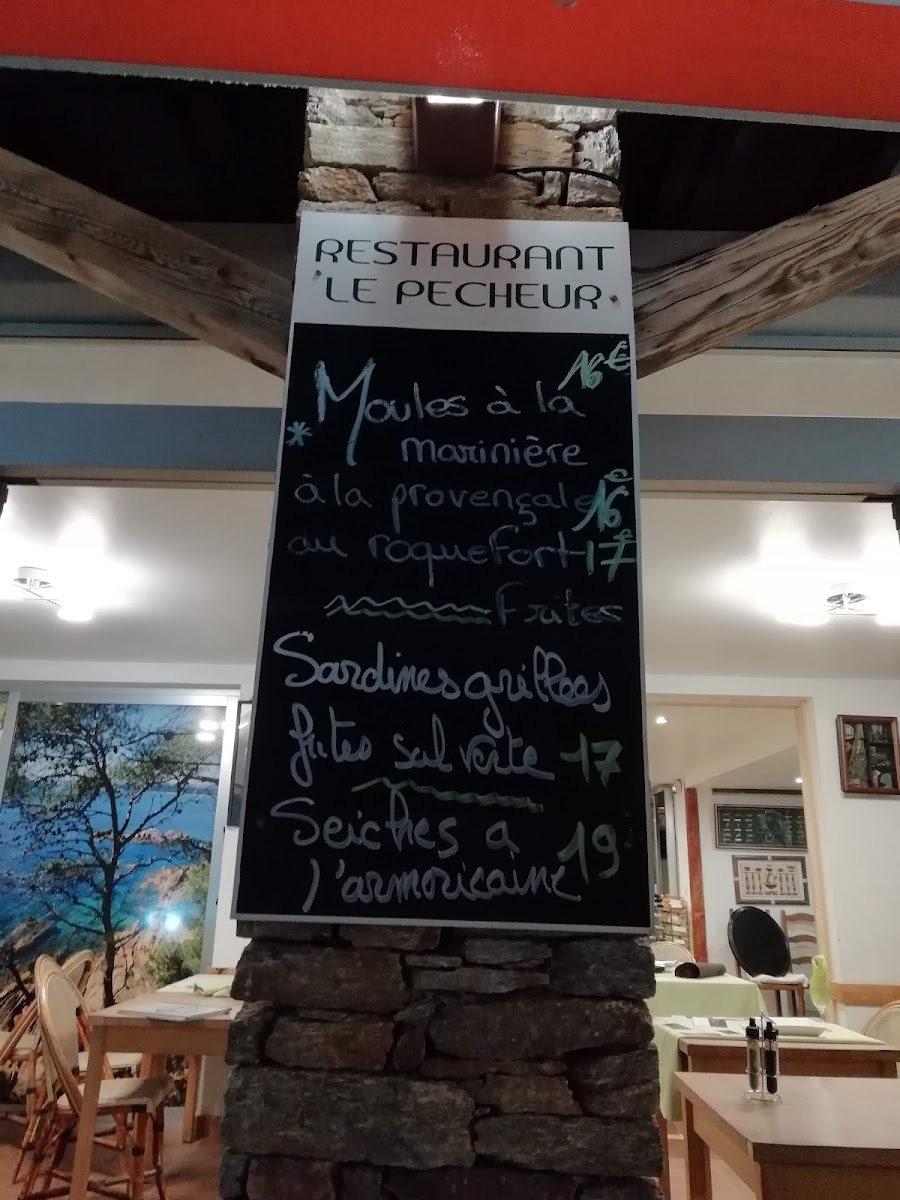 RESTAURANT
LE PECHEUR
16€
Moules à la
* marinière
à la provençale 16€
au roquefort 17€
frites
Sardines grillées
frites sal verte 17
Seiches a
l'armoricaine 19